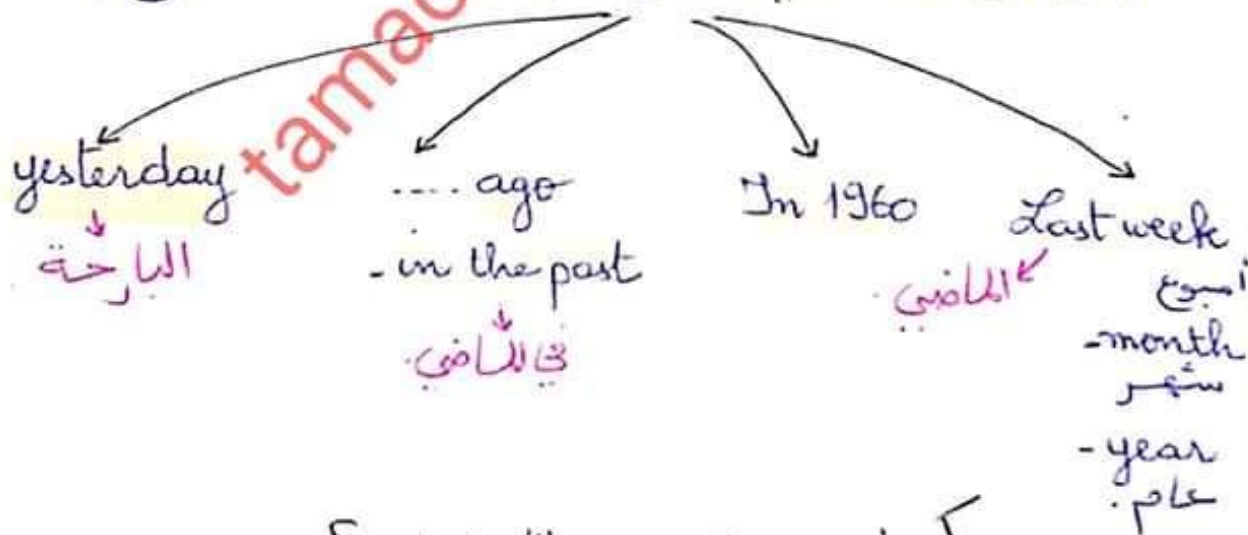 tamac
yesterday
البارحة
.... ago
- in the past
في الماضي.
In 1960
Last week
الماضي
أسبوع
- month
شهر
- year
عام.